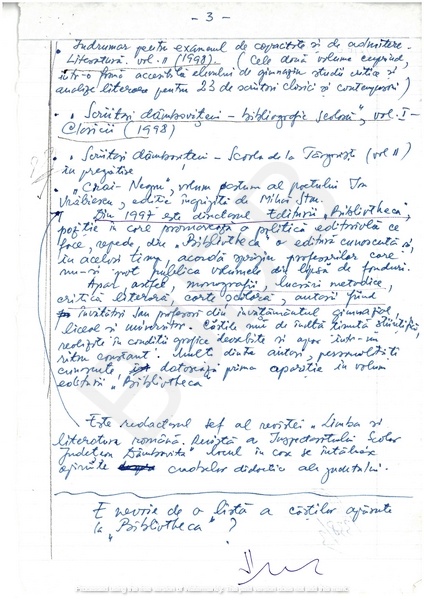 - 3 -
• Îndrumar pentru examenul de capacitate și de admitere.
Literatură. vol. II (1998). (Cele două volume cuprind,
într-o formă accesibilă elevului de gimnaziu studii critice și
analize literare pentru 23 de scriitori clasici și contemporani)
• „Scriitori dâmbovițeni - bibliografie școlară", vol. I -
Clasicii (1998)
• Scriitori dâmbovițeni - Școala de la Târgoviște (vol II)
în pregătire
• volum postum al poetului Ion
Vrăbiescu, ediție îngrijită de Mihai Stan.
Din 1997 este directorul Editurii „Bibliotheca",
poziție în care promovează o politică editorială ce
face, repede, din „Bibliotheca" o editură cunoscută și,
în același timp, acordă sprijin profesorilor care
nu-și pot publica volumele din lipsă de fonduri.
Apar, astfel, monografii, lucrări metodice,
critică literară, carte școlară, autori fiind
învățători sau profesori din învățământul gimnazial,
liceal și universitar. Cărțile sunt de înaltă ținută științifică,
realizate în condiții grafice deosebite și apar într-un
ritm constant. Mulți dintre autori, personalități
cunoscute datorează prima apariție în volum
editurii „Bibliotheca"
Este redactorul șef al revistei „Limba și
literatura română. Revistă a Inspectoratului Școlar
Județean Dâmbovița" locul în care se întâlnesc
cadrelor didactice ale județului.
E nevoie de o listă a cărților apărute
la „Bibliotheca" ?